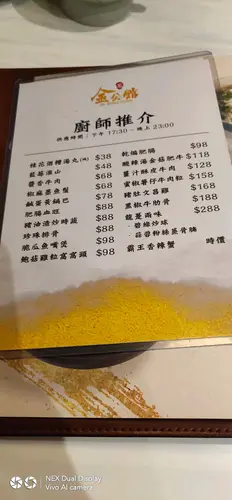 金公館
廚師推介
供應時間：下午 17:30 - 晚上 23:00
桂花酒糟湯丸(例) $38
藍莓淮山 $48
醬香牛肉 $68
椒麻墨魚盞 $68
鹹蛋黃鍋巴 $68
肥腸血旺 $88
豬油渣炒時蔬 $88
珍珠排骨 $88
脆瓜魚嘴煲 $98
鮑菇雞粒窩窩頭 $98
乾煏肥腸 $98
酸辣湯金菇肥牛 $118
薑汁酥皮牛肉 $128
蜜椒薯仔牛肉粒 $158
豬肚文昌雞 $168
黑椒牛肋骨 $188
龍躉兩味 $288
- 碧綠炒球
- 蒜蓉粉絲蒸骨腩
霸王香辣蟹 時價
NEX Dual Display
Vivo AI camera